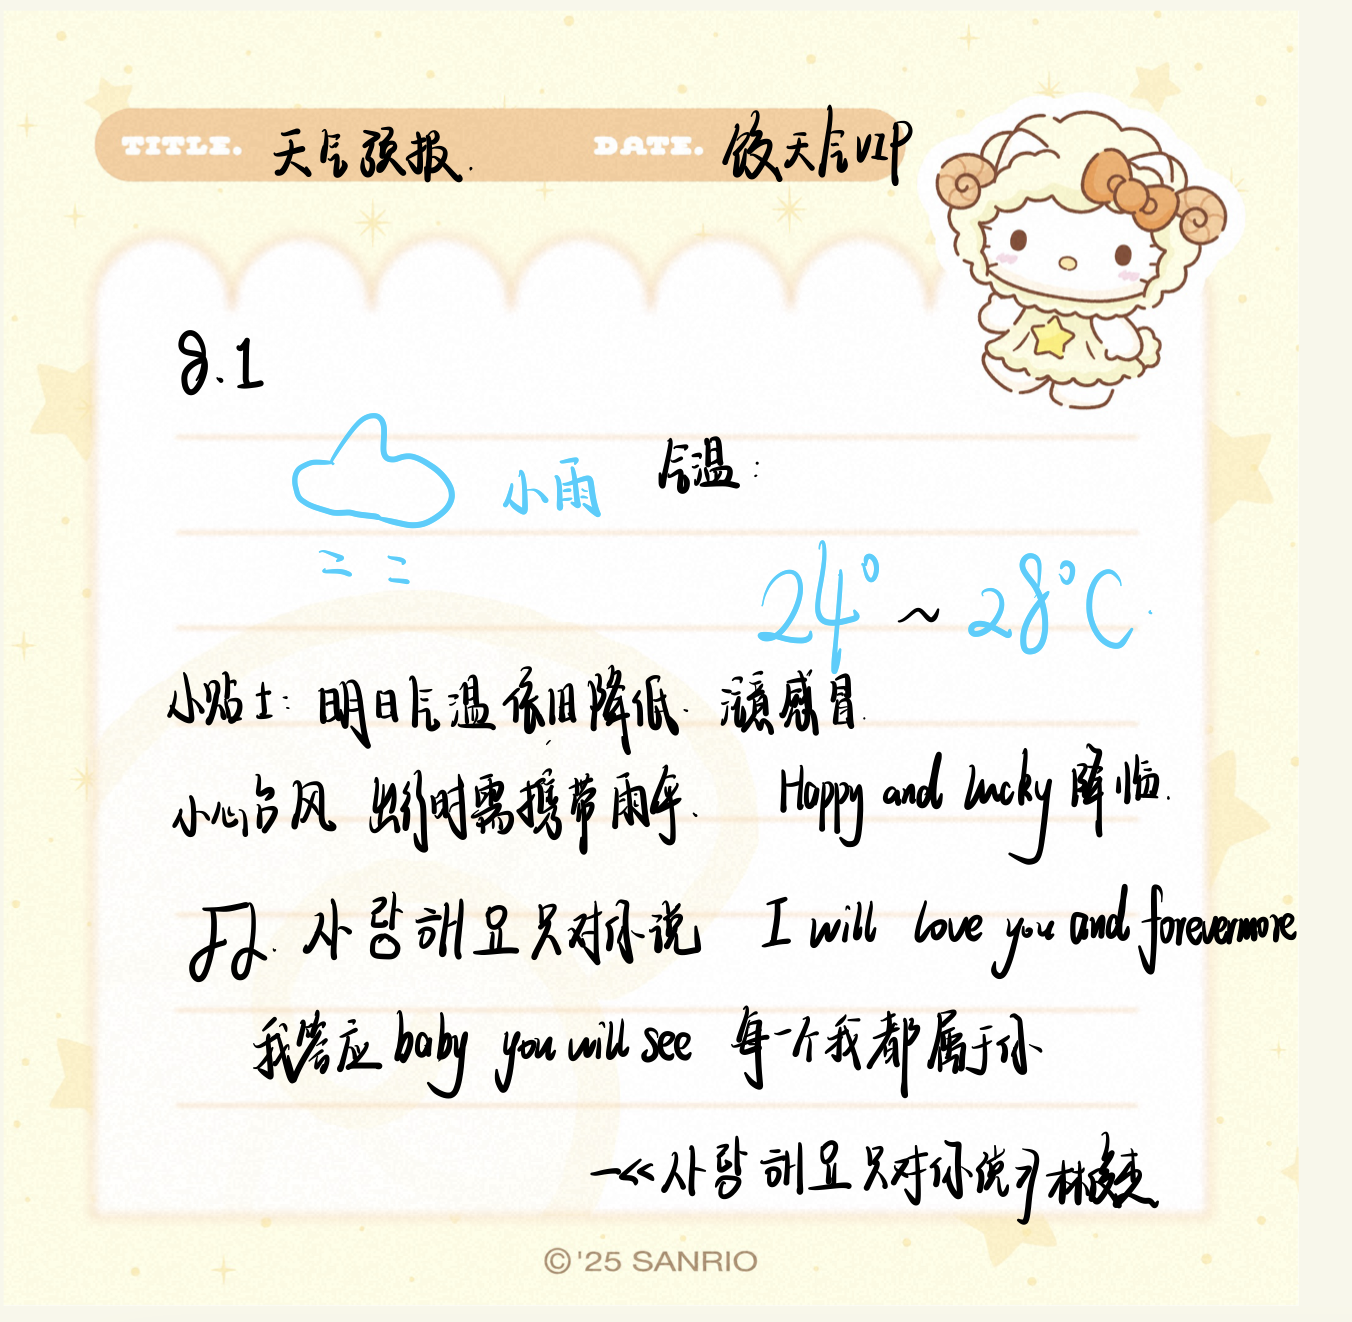 TITLE. 天气预报. DATE. 饺天气VIP
8.1
小雨 气温:
24° ~ 28°C.
小贴士: 明日气温依旧降低. 注意感冒.
小心台风 出行时需携带雨伞. Happy and lucky 降临.
사랑해요只对你说 I will love you and forevermore
我答应 baby you will see 每一个我都属于你
—《사랑해요只对你说》林俊杰
©'25 SANRIO